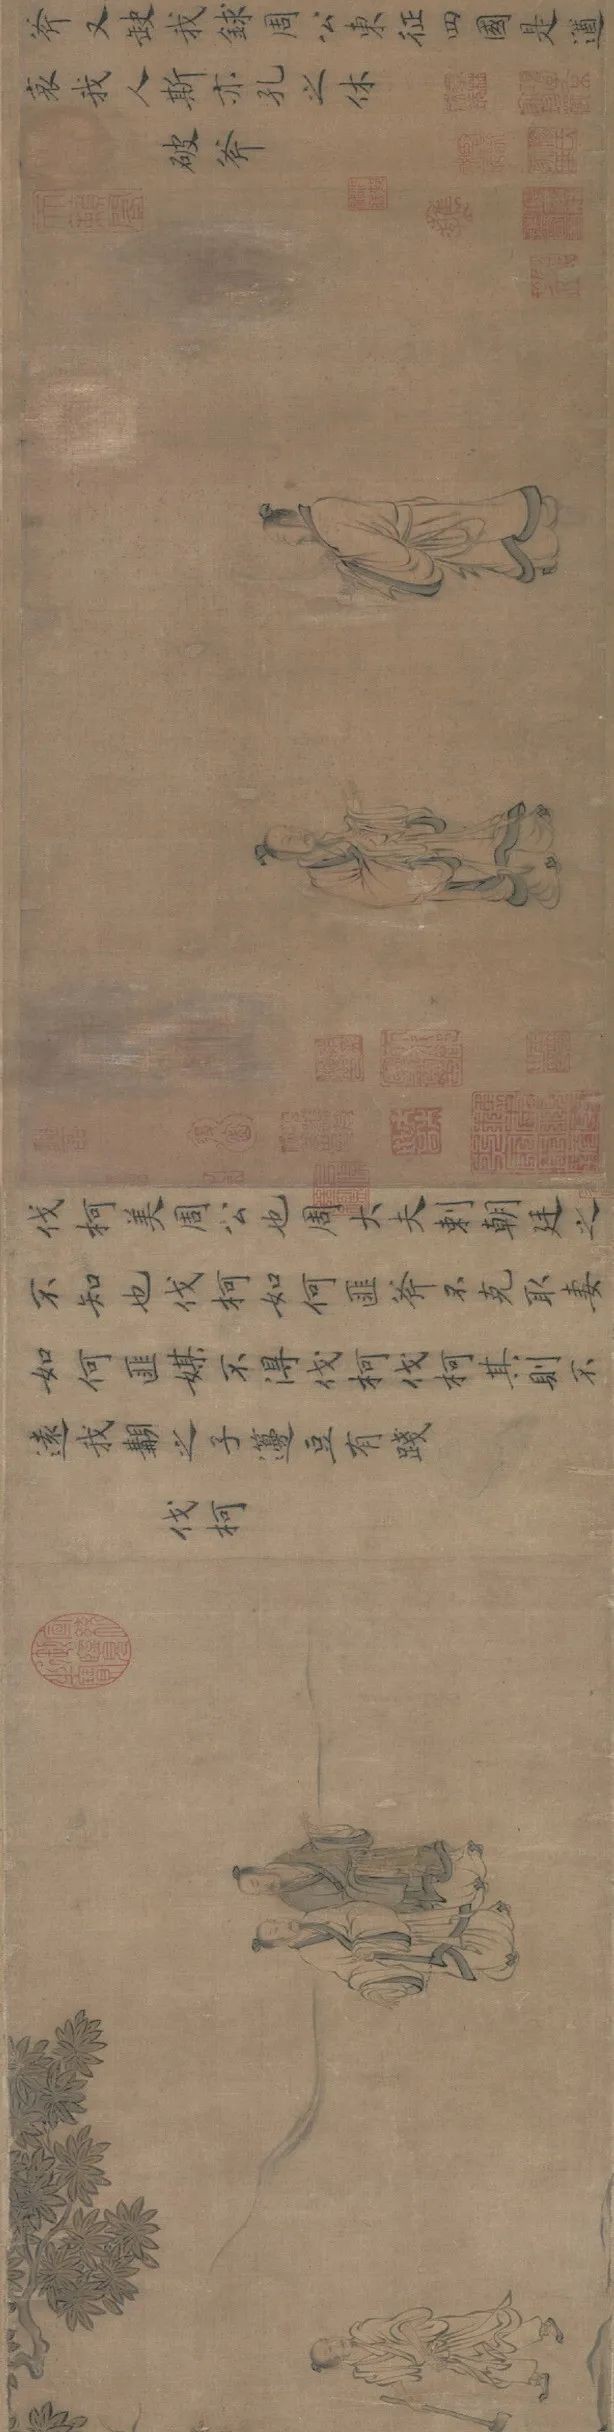 斧又缺我銶周公東征四國是遒
哀我人斯亦孔之休
破斧
伐柯美周公也周大夫刺朝廷之
不知也伐柯如何匪斧不克取妻
如何匪媒不得伐柯伐柯其則不
遠我覯之子籩豆有踐
伐柯